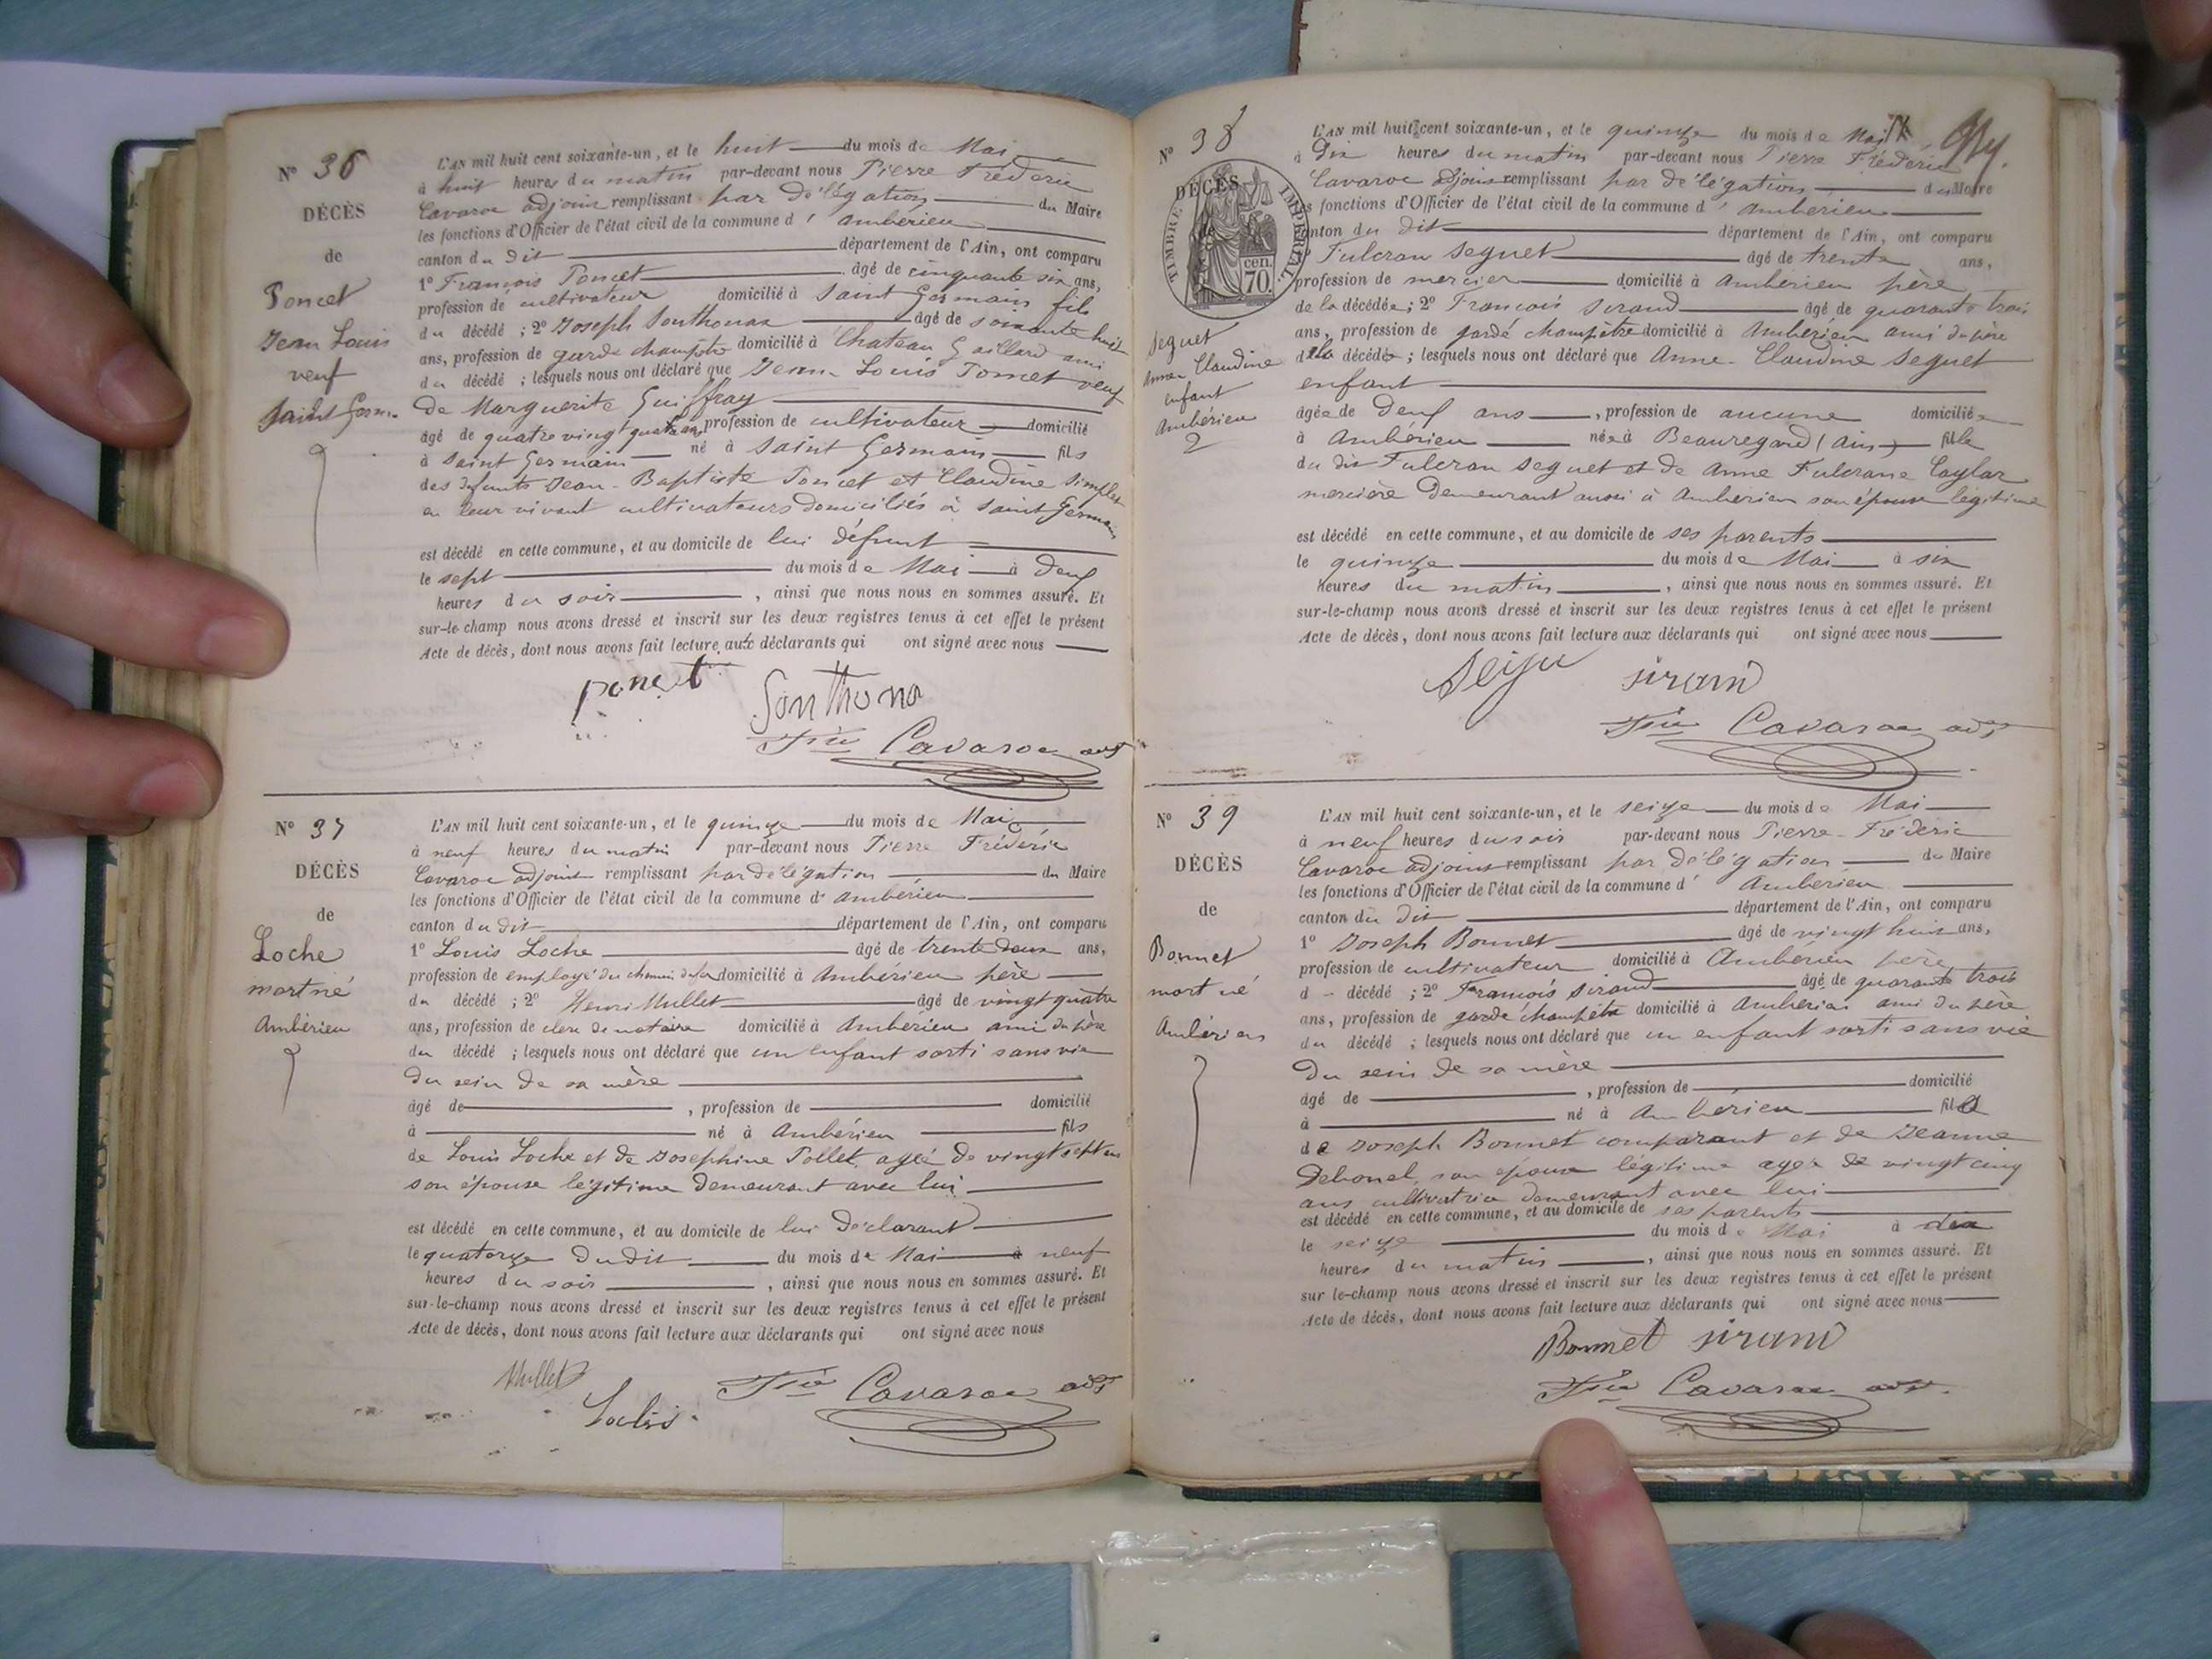 N° 36
DÉCÈS
de
Poncet
Jean Louis
veuf
Saint Germ.
L'AN mil huit cent soixante-un, et le huit du mois de Mai
à huit heures du matin par-devant nous Pierre Frédéric
Cavaroc adjoint remplissant par délégation du Maire
les fonctions d'Officier de l'état civil de la commune d' Ambérieu
canton du dit département de l'Ain, ont comparu
1° François Poncet âgé de cinquante six ans,
profession de cultivateur domicilié à Saint Germain fils
du décédé ; 2° Joseph Sonthonax âgé de soixante huit
ans, profession de garde champêtre domicilié à Chateau Gaillard ami
du décédé ; lesquels nous ont déclaré que Jean Louis Poncet veuf
de Marguerite Guiffray
âgé de quatre vingt quatre ans profession de cultivateur domicilié
à Saint Germain né à Saint Germain fils
des défunts Jean-Baptiste Poncet et Claudine Simplet
en leur vivant cultivateurs domiciliés à Saint Germain
est décédé en cette commune, et au domicile de lui défunt
le sept du mois de Mai à deux
heures du soir , ainsi que nous nous en sommes assuré. Et
sur-le-champ nous avons dressé et inscrit sur les deux registres tenus à cet effet le présent
Acte de décès, dont nous avons fait lecture aux déclarants qui ont signé avec nous
poncet Sonthona
Fric Cavaroc adj
N° 37
DÉCÈS
de
Loche
mort né
Ambérieu
L'AN mil huit cent soixante-un, et le quinze du mois de Mai
à neuf heures du matin par-devant nous Pierre Frédéric
Cavaroc adjoint remplissant par délégation du Maire
les fonctions d'Officier de l'état civil de la commune d' Ambérieu
canton du dit département de l'Ain, ont comparu
1° Louis Loche âgé de trente deux ans,
profession de employé du chemin de fer domicilié à Ambérieu père
du décédé ; 2° Henri Mullet âgé de vingt quatre
ans, profession de clerc de notaire domicilié à Ambérieu ami du père
du décédé ; lesquels nous ont déclaré que un enfant sorti sans vie
du sein de sa mère
âgé de , profession de domicilié
à né à Ambérieu fils
de Louis Loche et de Josephine Pollet, agée de vingt sept ans
son épouse légitime demeurant avec lui
est décédé en cette commune, et au domicile de lui déclarant
le quatorze dudit du mois de Mai à neuf
heures du soir , ainsi que nous nous en sommes assuré. Et
sur-le-champ nous avons dressé et inscrit sur les deux registres tenus à cet effet le présent
Acte de décès, dont nous avons fait lecture aux déclarants qui ont signé avec nous
Mullet
Fric Cavaroc adj
N° 38
DÉCÈS
de
TIMBRE IMPERIAL
70 cen.
Seguet
Anne Claudine
enfant
Ambérieu
2
L'AN mil huit cent soixante-un, et le quinze du mois de Mai
à dix heures du matin par-devant nous Pierre Fréderic
Cavaroc adjoint remplissant par délégation du Maire
les fonctions d'Officier de l'état civil de la commune d' Ambérieu
canton du dit département de l'Ain, ont comparu
Fulcran Seguet âgé de trente ans,
profession de mercier domicilié à Ambérieu père
de la décédée ; 2° François Sirand âgé de quarante trois
ans, profession de garde champêtre domicilié à Ambérieu ami du père
de la décédée ; lesquels nous ont déclaré que Anne-Claudine Seguet
enfant
âgée de deux ans , profession de aucune domiciliée
à Ambérieu née à Beauregard (Ain) fille
du dit Fulcran Seguet et de Anne Fulcrane Caylar
mercière demeurant aussi à Ambérieu son épouse légitime
est décédé en cette commune, et au domicile de ses parents
le quinze du mois de Mai à six
heures du matin , ainsi que nous nous en sommes assuré. Et
sur-le-champ nous avons dressé et inscrit sur les deux registres tenus à cet effet le présent
Acte de décès, dont nous avons fait lecture aux déclarants qui ont signé avec nous
sirand
Fric Cavaroc adj
N° 39
DÉCÈS
de
Bonnet
mort né
Ambérieu
L'AN mil huit cent soixante-un, et le seize du mois de Mai
à neuf heures du soir par-devant nous Pierre-Fréderic
Cavaroc adjoint remplissant par délégation du Maire
les fonctions d'Officier de l'état civil de la commune d' Ambérieu
canton du dit département de l'Ain, ont comparu
1° Joseph Bonnet âgé de vingt huit ans,
profession de cultivateur domicilié à Ambérieu père
d - décédé ; 2° François Sirand âgé de quarante trois
ans, profession de garde champêtre domicilié à Ambérieu ami du père
du décédé ; lesquels nous ont déclaré que un enfant sorti sans vie
du sein de sa mère
âgé de , profession de domicilié
à né à Ambérieu fils
de Joseph Bonnet comparant et de Jeanne
son épouse légitime agée de vingt cinq
ans cultivatrice demeurant avec lui
est décédé en cette commune, et au domicile de ses parents
le seize du mois de Mai à dix
heures du matin , ainsi que nous nous en sommes assuré. Et
sur le-champ nous avons dressé et inscrit sur les deux registres tenus à cet effet le présent
Acte de décès, dont nous avons fait lecture aux déclarants qui ont signé avec nous
Bonnet sirand
Fric Cavaroc adj.